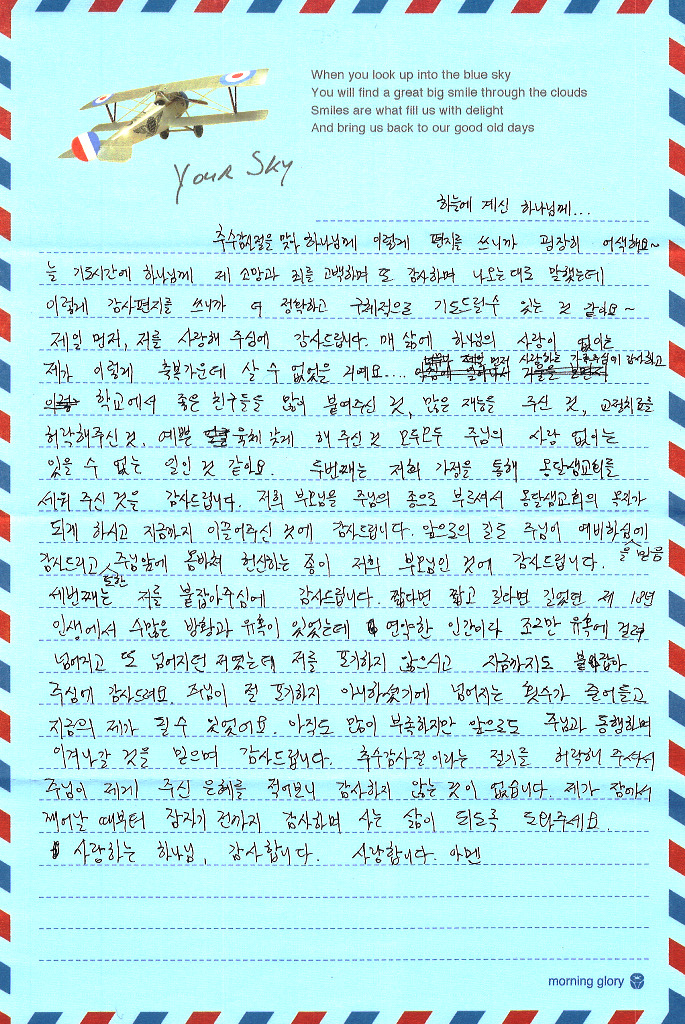 When you look up into the blue sky
You will find a great big smile through the clouds
Smiles are what fill us with delight
And bring us back to our good old days
Your Sky
하늘에 계신 하나님께...
추수감사절을 맞아 하나님께 이렇게 편지를 쓰니까 굉장히 어색해요~
늘 기도시간에 하나님께 제 소망과 죄를 고백하며 또 감사하며 나오는대로 말했는데
이렇게 감사편지를 쓰니까 더 정확하고 구체적으로 기도드릴수 있는 것 같아요~
제일 먼저, 저를 사랑해 주심에 감사드립니다. 매 삶에 하나님의 사랑이 없이는
제가 이렇게 축복가운데 살 수 없었을 거예요....
학교에서 좋은 친구들을 많이 붙여주신 것, 많은 재능을 주신 것, 교정치료를
허락해주신 것, 예쁜 육체 갖게 해 주신 것 모두모두 주님의 사랑 없이는
있을 수 없는 일인 것 같아요. 두번째는 저희 가정을 통해 옹달샘교회를
세워 주신 것을 감사드립니다. 저희 부모님을 주님의 종으로 부르셔서 옹달샘교회의 목자가
되게 하시고 지금까지 이끌어주신 것에 감사드립니다. 앞으로의 길도 주님이 예비하심에
을 믿음
감사드리고 주님앞에 몸바쳐 헌신하는 종이 저희 부모님인 것에 감사드립니다.
또한
세번째는 저를 붙잡아주심에 감사드립니다. 짧다면 짧고 길다면 길었던 제 18년
인생에서 수많은 방황과 유혹이 있었는데 연약한 인간이라 조그만 유혹에 걸려
넘어지고 또 넘어지던 저였는데 저를 포기하지 않으시고 지금까지도 붙잡아
주심에 감사드려요. 주님이 절 포기하지 아니하셨기에 넘어지는 횟수가 줄어들고
지금의 제가 될 수 있었어요. 아직도 많이 부족하지만 앞으로도 주님과 동행하며
이겨나갈 것을 믿으며 감사드립니다. 추수감사절이라는 절기를 허락해 주셔서
주님이 제게 주신 은혜를 적어보니 감사하지 않는 것이 없습니다. 제가 잠에서
깨어날 때부터 잠자기 전까지 감사하며 사는 삶이 되도록 도와주세요.
사랑하는 하나님, 감사합니다. 사랑합니다. 아멘
morning glory